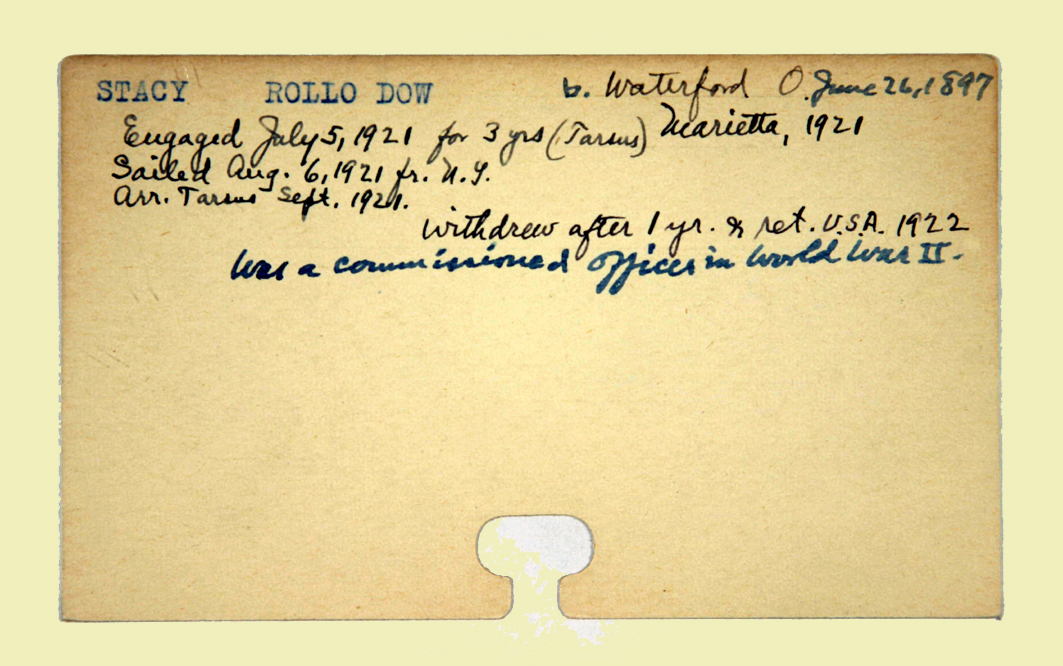 STACY ROLLO DOW b. Waterford O. June 26, 1897
Engaged July 5, 1921 for 3 yrs (Tarsus) Marietta, 1921
Sailed Aug. 6, 1921 fr. N.Y.
Arr. Tarsus Sept. 1921.
Withdrew after 1 yr. & ret. U.S.A. 1922
Was a commissioned officer in World War II.